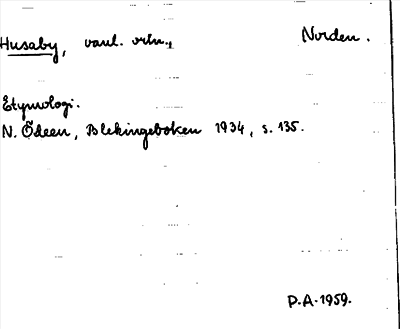 Husaby, vanl. ortn., Norden.
Etymologi.
N. Ödeen, Blekingeboken 1934, s. 135.
P.A. 1959.